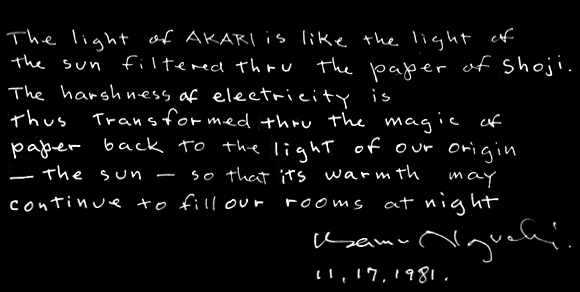 The light of AKARI is like the light of
the sun filtered thru the paper of shoji.
The harshness of electricity is
thus transformed thru the magic of
paper back to the light of our origin
— the sun — so that its warmth may
continue to fill our rooms at night
Isamu Noguchi.
11.17.1981.